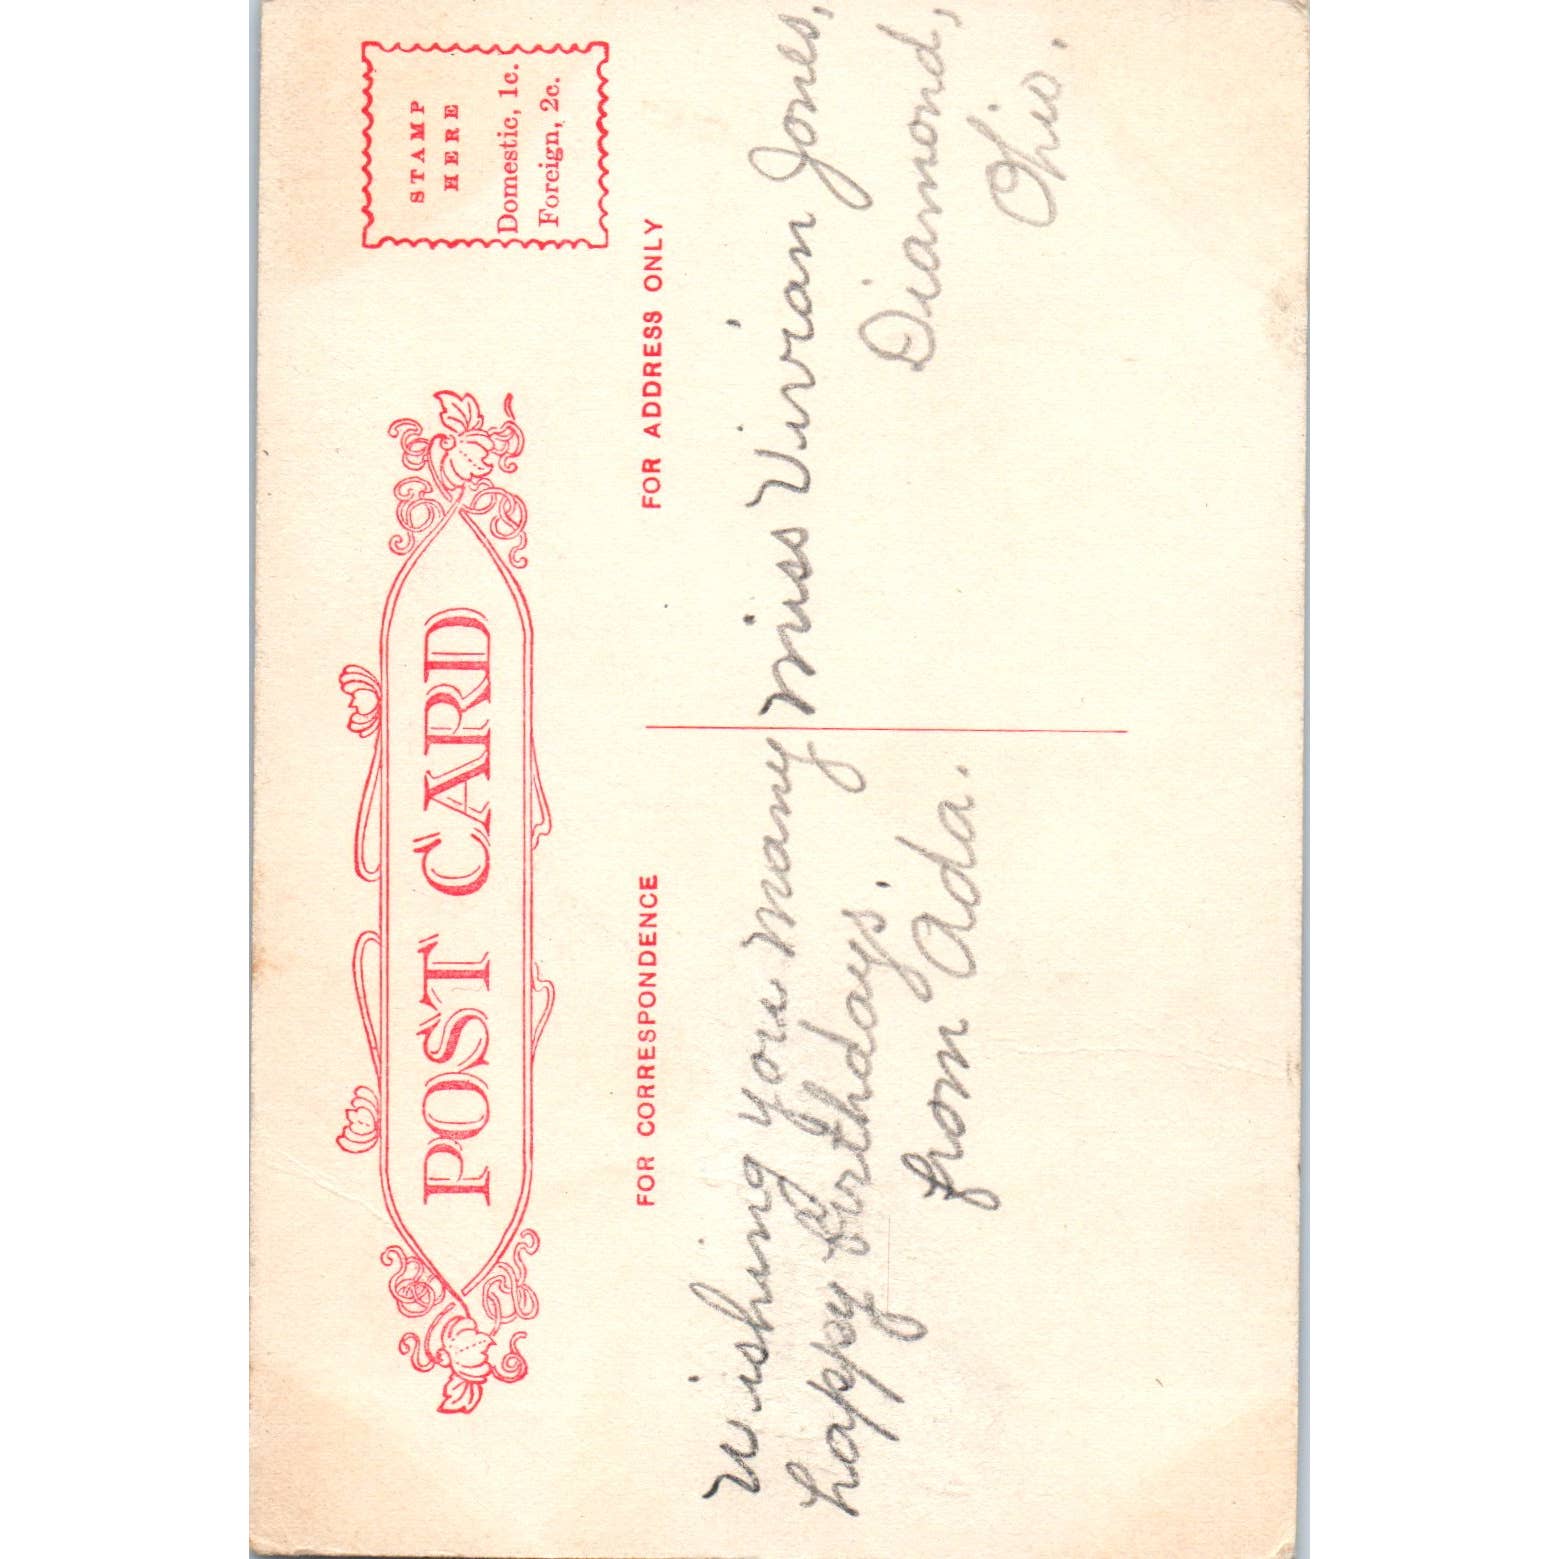 POST CARD
STAMP
HERE
Domestic, 1c.
Foreign, 2c.
FOR CORRESPONDENCE
FOR ADDRESS ONLY
Wishing you many
happy birthdays.
from Ada.
Miss Vivian Jones,
Diamond,
Ohio.